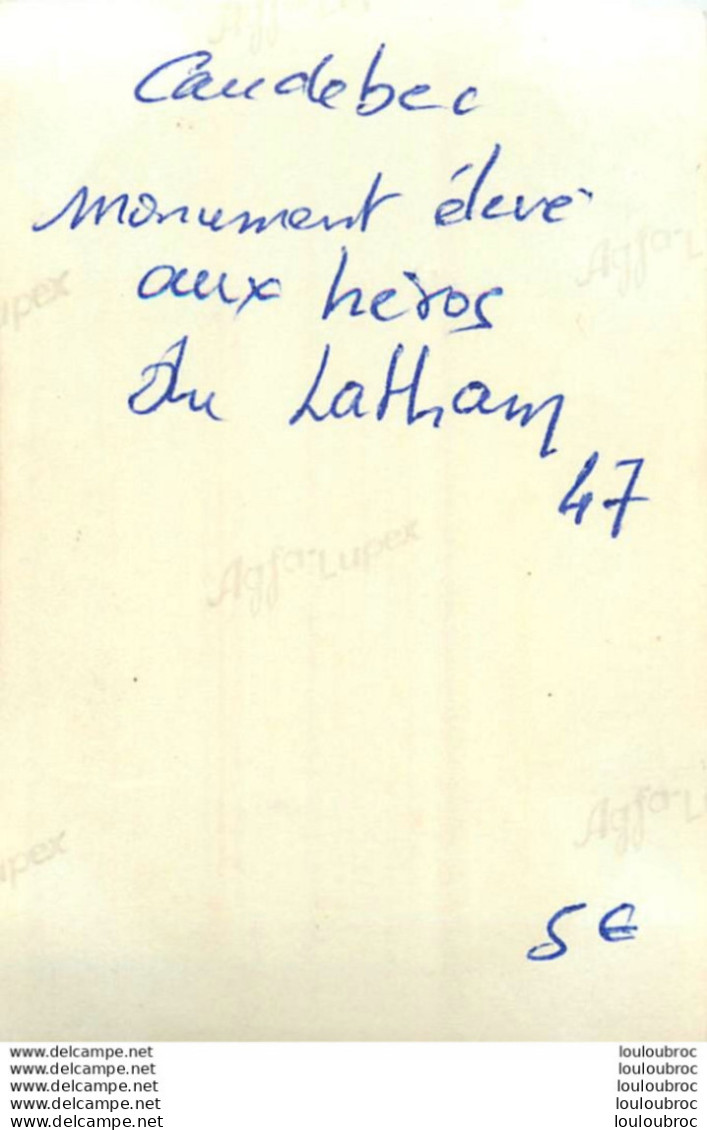 Agfa
Caudebec
monument élevé
Agfa-Lu
aux héros
upex
du Latham
47
Agfa-Lupex
Agfa-L
upex
5€
www.delcampe.net
www.delcampe.net
www.delcampe.net
www.delcampe.net
www.delcampe.net
louloubroc
louloubroc
louloubroc
louloubroc
louloubroc